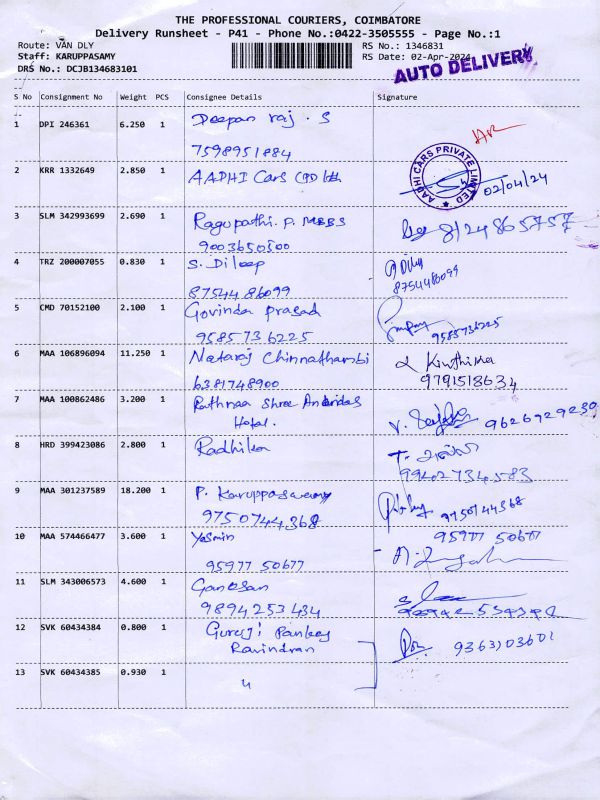 THE PROFESSIONAL COURIERS, COIMBATORE
Delivery Runsheet - P41 - Phone No.:0422-3505555 - Page No.:1
Route: VAN DLY
RS No.: 1346831
Staff: KARUPPASAMY
RS Date: 02-Apr-2024
DRS No.: DCJB134683101
AUTO DELIVERY
S No Consignment No Weight PCS Consignee Details Signature
1 DPI 246361 6.250 1 Deepan raj . S
7598951884
2 KRR 1332649 2.850 1 AADHI Cars
AADHI CARS PRIVATE LIMITED
02/04/24
3 SLM 342993699 2.690 1 Ragupathi. P. MBBS
9003650500
4 TRZ 200007055 0.830 1 S. Dileep
8754486099 8754486099
5 CMD 70152100 2.100 1 Govinda prasad
9585736225 9585736225
6 MAA 106896094 11.250 1 Nataraj Chinnathambi
6381748900 9791518634
7 MAA 100862486 3.200 1 Rathnaa Shree
Hotel. 9626929230
8 HRD 399423086 2.800 1 Radhika
99402734583
9 MAA 301237589 18.200 1 P. Karuppasamy
9750744368 9750744368
10 MAA 574466477 3.600 1 Yasmin 95977 50677
95977 50677
11 SLM 343006573 4.600 1 Ganesan
9894253434
12 SVK 60434384 0.800 1 Guruji Pandey
Ravindran 9363103601
13 SVK 60434385 0.930 1 "